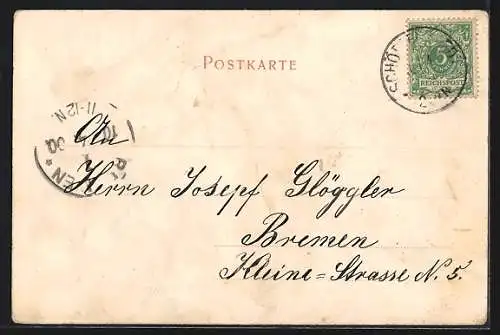 POSTKARTE
5
REICHSPOST
11-12 N.
00
An
Herrn Josepf Glöggler
Bremen
Kleine=Strasse N. 5.